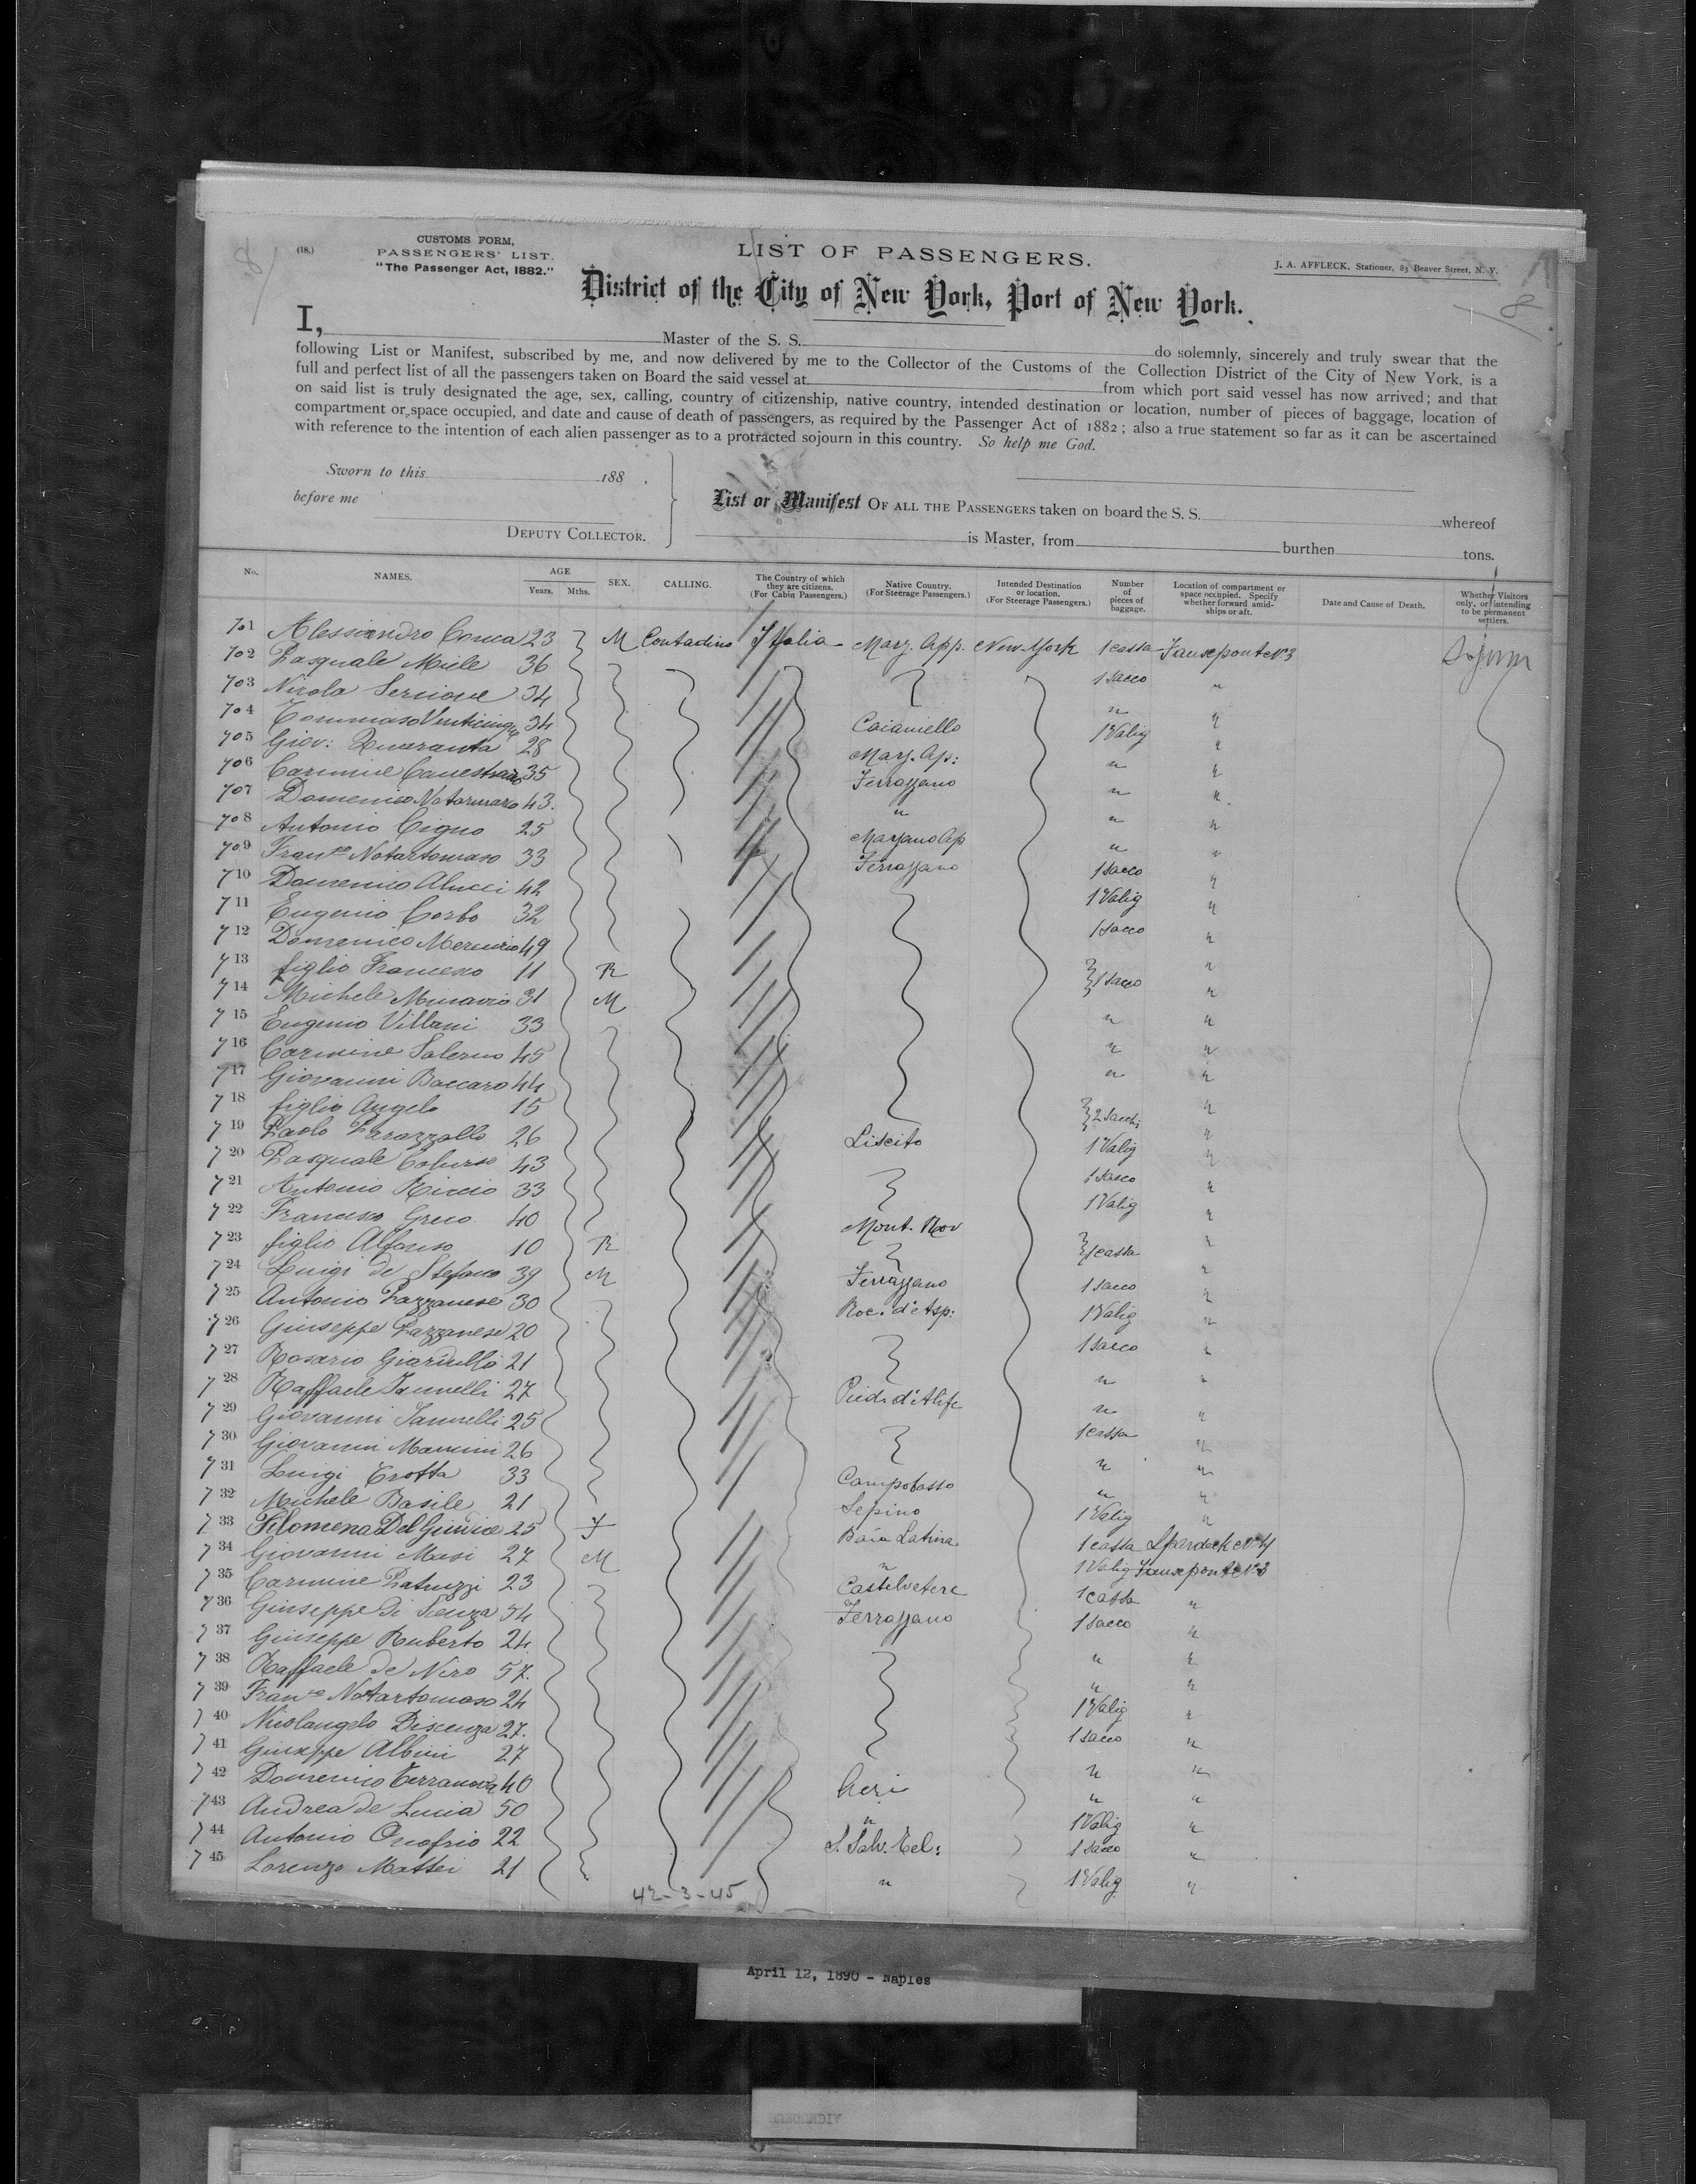 (18.)
CUSTOMS FORM,
PASSENGERS' LIST.
"The Passenger Act, 1882."
LIST OF PASSENGERS.
District of the City of New York, Port of New York.
J. A. AFFLECK, Stationer, 83 Beaver Street, N. Y.
8
I, Master of the S. S. do solemnly, sincerely and truly swear that the
following List or Manifest, subscribed by me, and now delivered by me to the Collector of the Customs of the Collection District of the City of New York, is a
full and perfect list of all the passengers taken on Board the said vessel at from which port said vessel has now arrived; and that
on said list is truly designated the age, sex, calling, country of citizenship, native country, intended destination or location, number of pieces of baggage, location of
compartment or space occupied, and date and cause of death of passengers, as required by the Passenger Act of 1882; also a true statement so far as it can be ascertained
with reference to the intention of each alien passenger as to a protracted sojourn in this country. So help me God.
Sworn to this 188 .
before me
DEPUTY COLLECTOR.
List or Manifest OF ALL THE PASSENGERS taken on board the S. S. whereof
is Master, from burthen tons.
No. NAMES. AGE Years. Mths. SEX. CALLING. The Country of which they are citizens. (For Cabin Passengers.) Native Country. (For Steerage Passengers.) Intended Destination or location. (For Steerage Passengers.) Number of pieces of baggage. Location of compartment or space occupied. Specify whether forward amidships or aft. Date and Cause of Death. Whether Visitors only, or intending to be permanent settlers.
701 Alessandro 23 M Contadino Italia Marz. App. New-York 1 cassa No 3
702 Pasquale Miele 36 1 sacco "
703 Nicola 34 " "
704 Tommaso 34 Caianiello 1 Valig "
705 Giov: Quaranta 28 Marz. Ap: " "
706 Carmine 35 Ferrazzano " "
707 Domenico 43 " " "
708 Antonio Cigno 25 Marzano Ap " "
709 Franco Notartomaso 33 Ferrazzano 1 sacco "
710 Domenico Alucci 42 1 Valig "
711 Eugenio Corbo 32 1 sacco "
712 Domenico Mercurio 49 "
713 figlio Francesco 11 R 1 sacco "
714 Michele 31 M " "
715 Eugenio Villani 33 " "
716 Carmine Salerno 45 " "
717 Giovanni Baccaro 44 "
718 figlio Angelo 15 2 sacchi "
719 Paolo 26 Liscito 1 Valig "
720 Pasquale 43 1 sacco "
721 Antonio Riccio 33 1 Valig "
722 Francesco Greco 40 Mont. Rov "
723 figlio Alfonso 10 R 1 cassa "
724 Luigi de Stefano 39 M Ferrazzano 1 sacco "
725 Antonio Pazzanese 30 Roc. d'Asp. 1 Valig "
726 Giuseppe Pazzanese 20 1 sacco "
727 Rosario 21 " "
728 Raffaele Iannelli 27 Pied. d'Alife " "
729 Giovanni Iannelli 25 1 cassa "
730 Giovanni Mancini 26 " "
731 Luigi Trotta 33 Campobasso " "
732 Michele Basile 21 Sepino 1 Valig "
733 Filomena Del Giudice 25 f Baia Latina 1 cassa Spardeck No 4
734 Giovanni Masi 27 M " 1 Valig No 3
735 Carmine Patruzzi 23 Castelvetere 1 cassa "
736 Giuseppe Di 54 Ferrazzano 1 sacco "
737 Giuseppe Ruberto 24 " "
738 Raffaele de Niro 57 " "
739 Franco Notartomaso 24 1 Valig "
740 Nicolangelo Discenza 27 1 sacco "
741 Giuseppe Albini 27 " "
742 Domenico Terranova 40 Acri " "
743 Andrea de Lucia 50 " 1 Valig "
744 Antonio Onofrio 22 S. Salv. Tel: 1 sacco "
745 Lorenzo Mattei 21 " 1 Valig "
42-3-45
April 12, 1890 - Naples